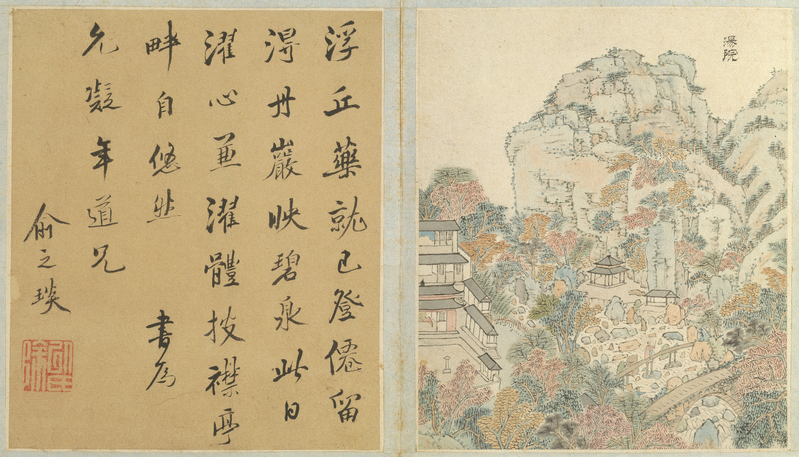 湯院
浮丘藥就已登僊留
得丹巖映碧泉此日
濯心兼濯體披襟亭
畔自悠然 書為
允凝年道兄
俞之琰